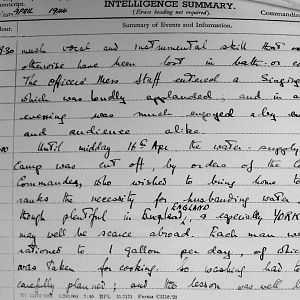 INTELLIGENCE SUMMARY.
(Erase heading not required).
APRIL 1944
Hour.
Summary of Events and Information.
much vocal and instrumental skill that
otherwise have been lost in bath or
The Officers' Mess Staff entered a Singing
which was loudly applauded; and in
evening was much enjoyed by
and audience alike.
Until midday 16th Apr the water-supply
Camp was cut off, by orders of the
Commander, who wished to bring home to
ranks the necessity for husbanding water
ENGLAND
though plentiful in England, & especially YORK
may well be scarce abroad. Each man
rationed to 1 gallon per day, of which
was taken for cooking. So washing had to
carefully planned; and the lesson was well